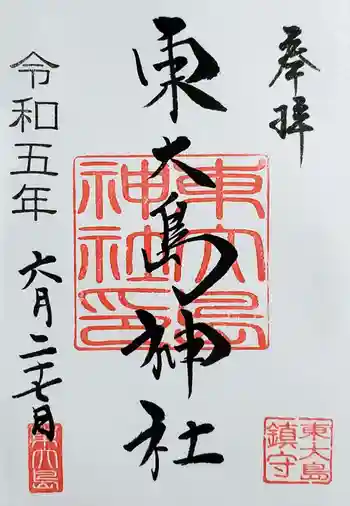 奉拝
東大島神社
令和五年
六月二十七日
東大島
神社印
東大島
鎮守
東大島